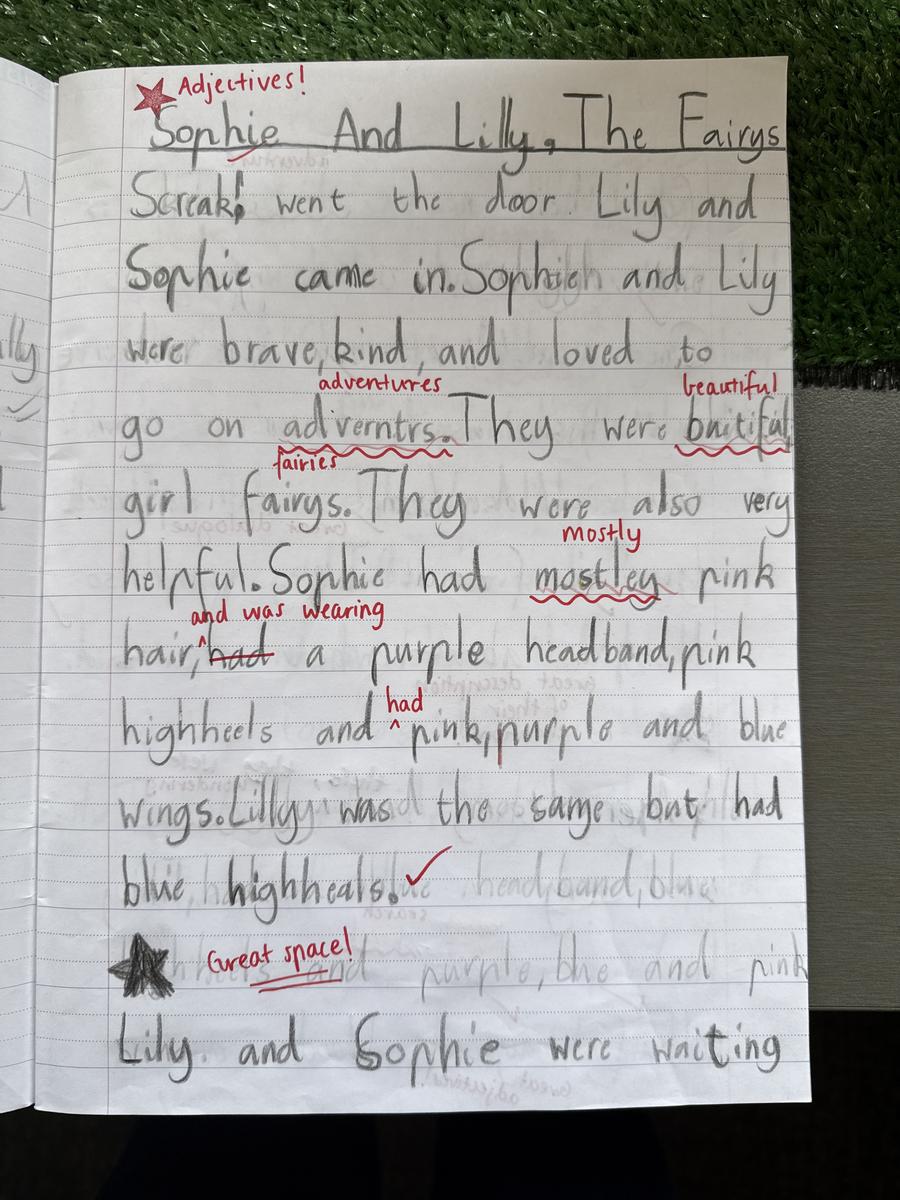 Adjectives!
Sophie And Lilly, The Fairys
Screak! went the door. Lily and
Sophie came in. Sophie and Lily
were brave, kind, and loved to
adventures beautiful
go on adverntrs. They were buitiful
fairies
girl fairys. They were also very
mostly
helpful. Sophie had mostley pink
and was wearing
hair, had a purple headband, pink
had
highheels and pink, purple and blue
wings. Lilly was the same but had
blue highheals.
head,band,blue
Great space!
and purple, blue and pink
Lily and Sophie were waiting